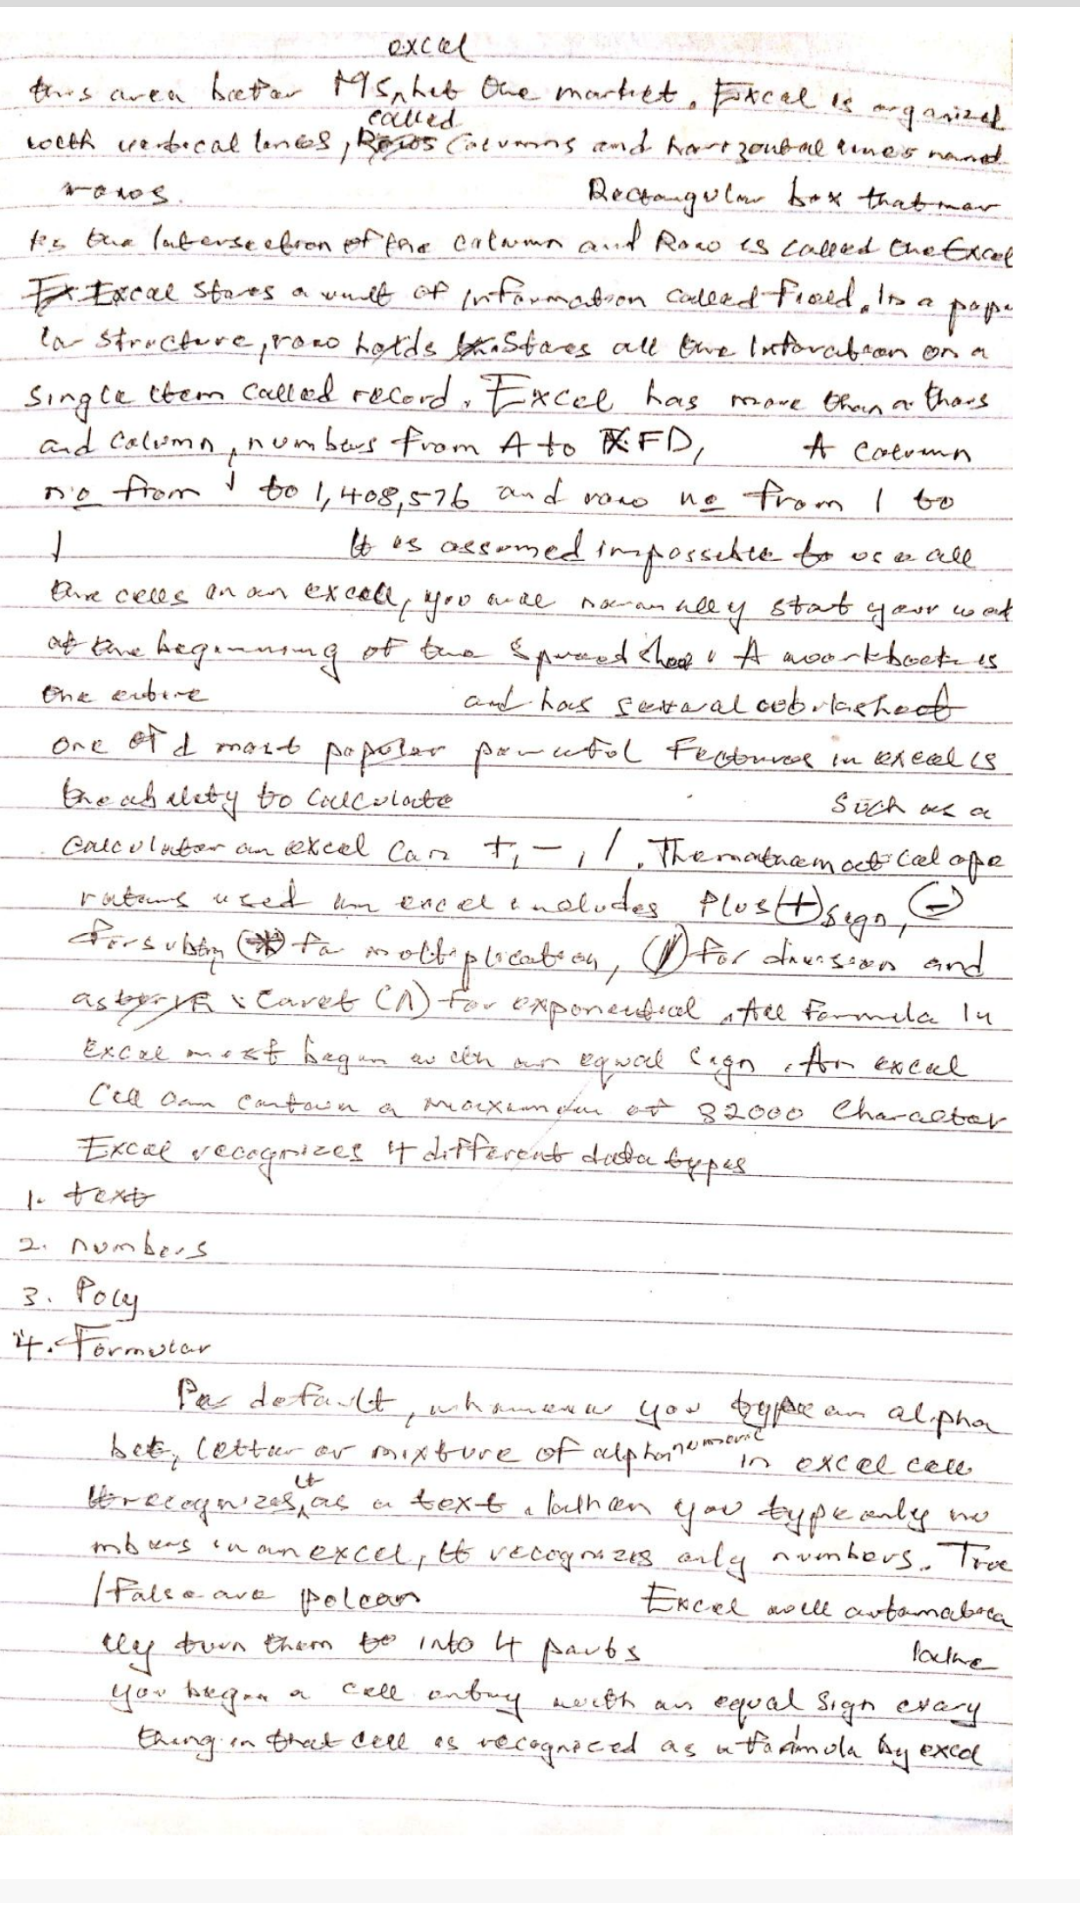 excel
this area better MS, het the market. Excel is organized
called
with vertical lines, Rows Columns and horizontal lines named
rows. Rectangular box that mar
ks the Intersection of the column and Row is called the Excel
Excel Stores a unit of information called field. In a
lar structure, row holds Stores all the Inforation on a
single item called record. Excel has more than a thous
and Column, numbers from A to XFD, A column
no from 1 to 1,408,576 and row no from 1 to
1 It is assumed impossible to use all
the cells in an excell, you will normally start your
at the beginning of the Spreed shee. A woorkbook is
the entire and has several
one of d most popular powerful Features in excel is
the ability to Calculate Such as a
Calculator an excel Can +, -, /. The mathematical ope
rators used in excel includes Plus (+) sign, (-)
for subtn (*) for moltiplication, (/) for division and
Caret (^) for exponential. All formula In
Excel most began with an equal sign. An excel
Cell can contain a maximum of 32000 Character
Excel recognizes 4 different data types
1. text
2. numbers
3. Poly
4. Formular
Per default, whenever you type an alpha
bet, letter or mixture of alphanumeric in excel cell
It recognizes it as a text. When you type only nu
mbers in an excel, It recognizes only numbers. True
/False are polean Excel will automatica
lly turn them to into 4 parts
you began a cell entry with an equal Sign every
thing in that cell is recognized as a formola by excel